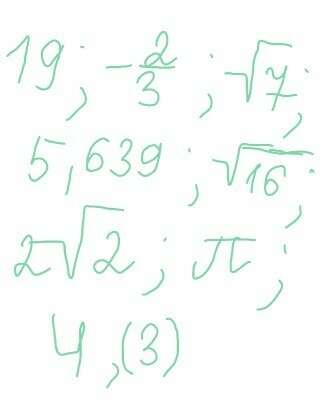 19; -2/3; √7;
5,639; √16;
2√2; π;
4,(3)